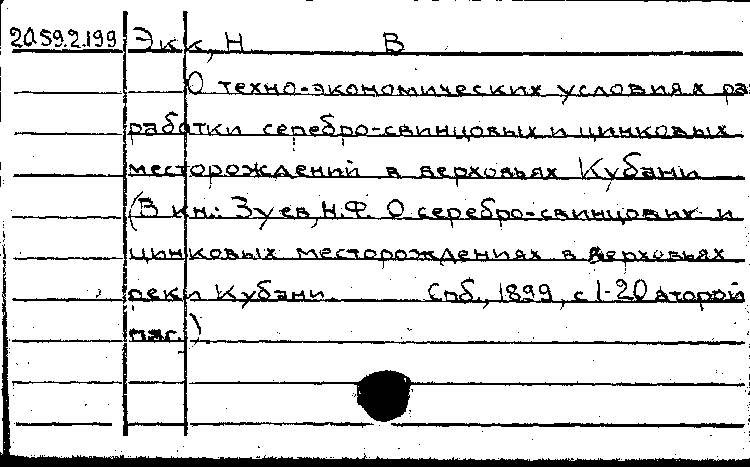 20.59.2.199 Экк, Н В
О техно-экономических условиях ра
работки серебро-свинцовых и цинковых
месторождений в верховьях Кубани
(В кн.: Зуев, Н.Ф. О серебро-свинцових и
цинковых месторождениях в верховьях
реки Кубани. Спб., 1899, с 1-20 второй
паг.)